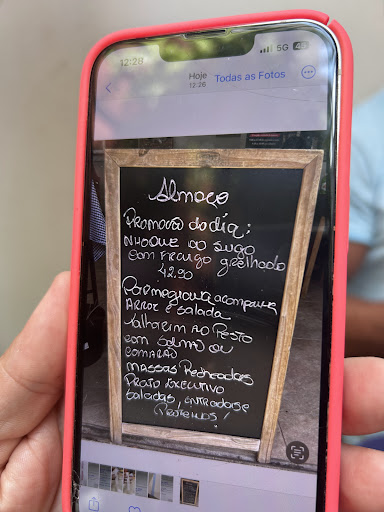 12:28
5G
Hoje
12:26
Todas as Fotos
Almoço
Promoção do dia:
NHOQUE AO SUGO
com FRANGO grelhado
42,90
Parmegiana acompanha
ARROZ E salada
Talharim AO PESTO
com Salmão ou
CAMARÃO
MASSAS Recheadas
PRATO EXECUTIVO
Saladas, ENTRADAS e
PETISCOS!